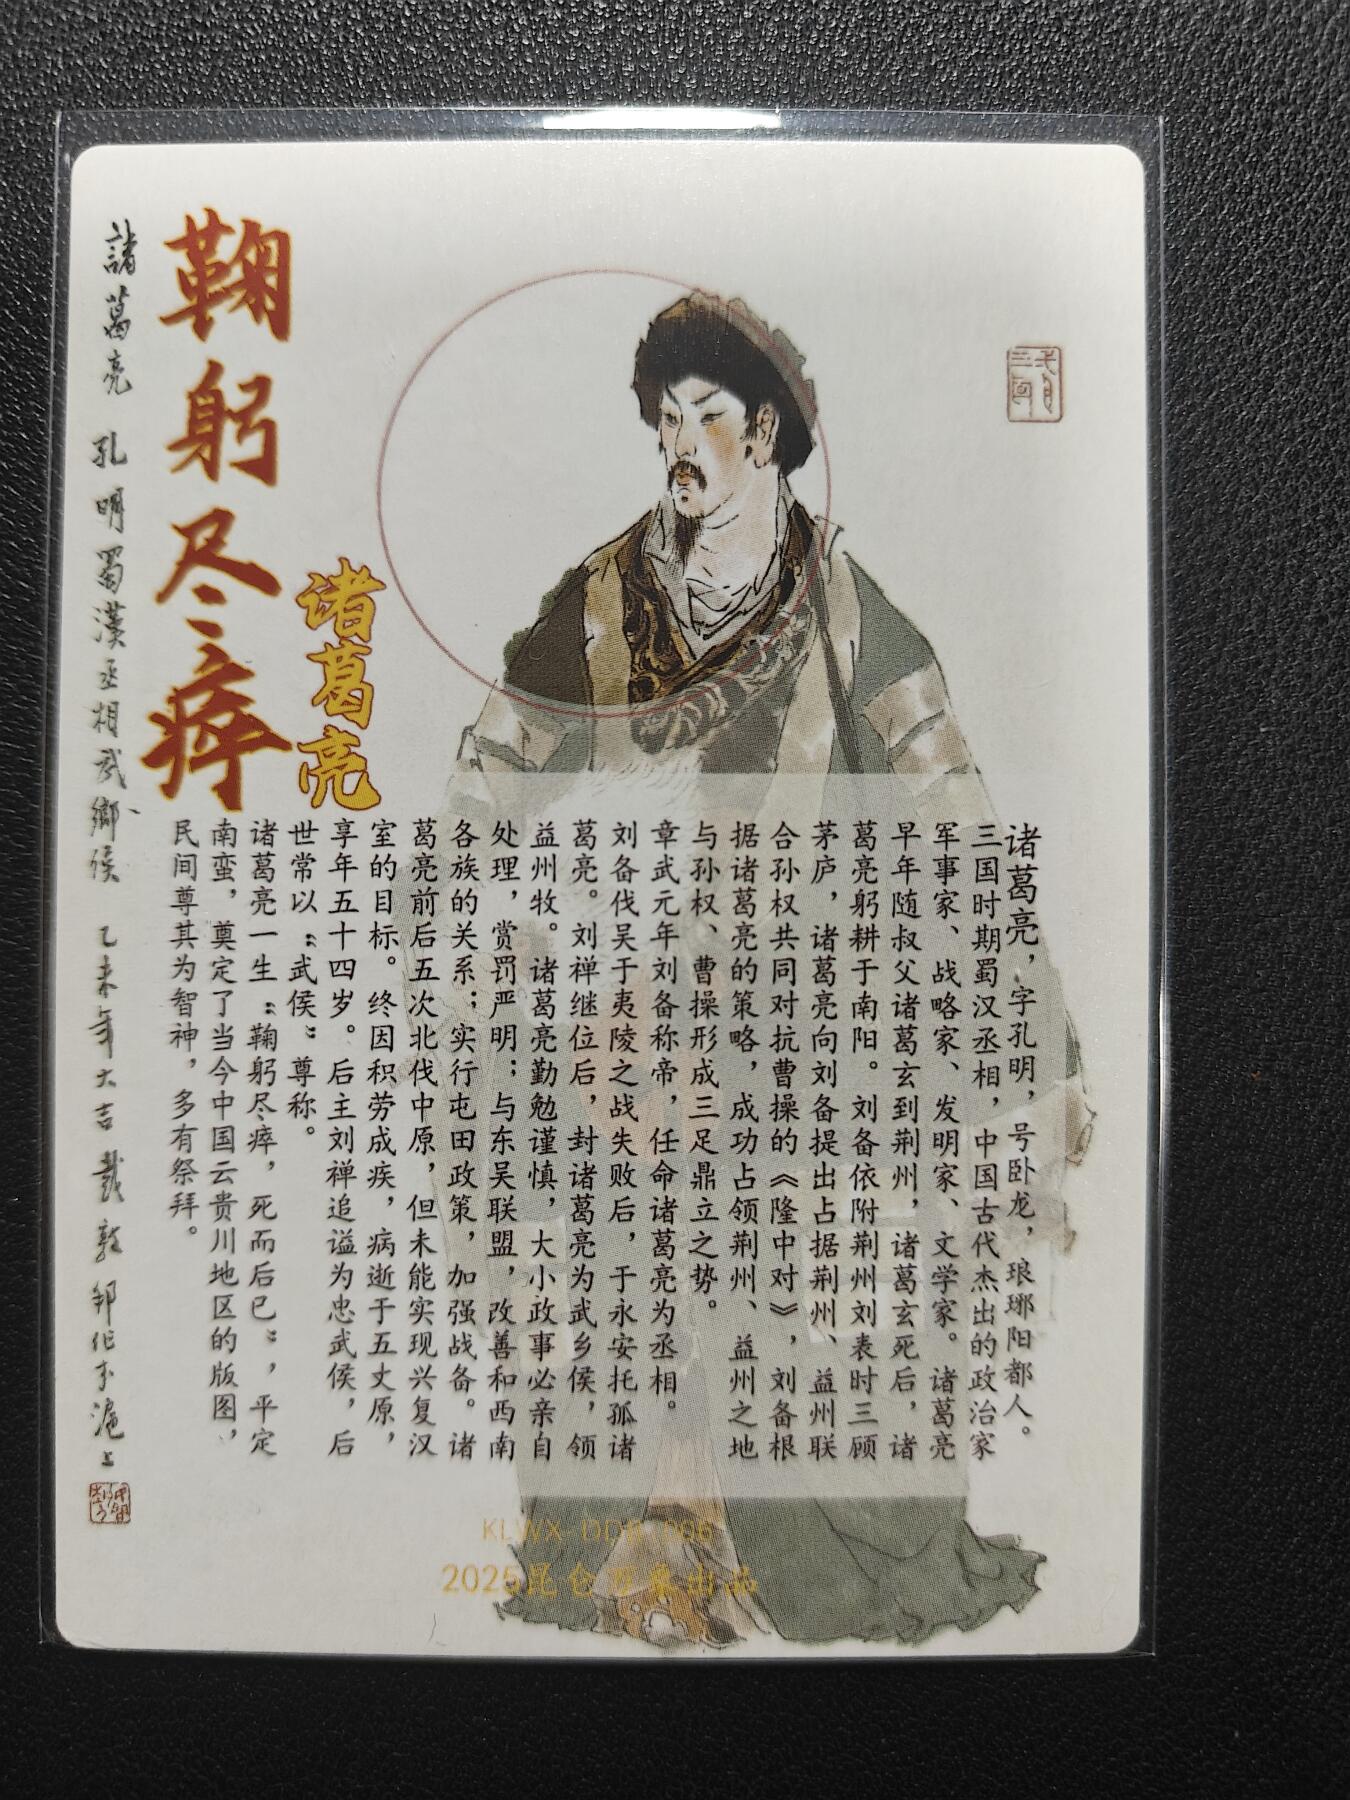 诸葛亮，字孔明，号卧龙，琅琊阳都人。
三国时期蜀汉丞相，中国古代杰出的政治家
军事家、战略家、发明家、文学家。诸葛亮
早年随叔父诸葛玄到荆州，诸葛玄死后，诸
葛亮躬耕于南阳。刘备依附荆州刘表时三顾
茅庐，诸葛亮向刘备提出占据荆州、益州联
合孙权共同对抗曹操的《隆中对》，刘备根
据诸葛亮的策略，成功占领荆州、益州之地
与孙权、曹操形成三足鼎立之势。
章武元年刘备称帝，任命诸葛亮为丞相。
刘备伐吴于夷陵之战失败后，于永安托孤诸
葛亮。刘禅继位后，封诸葛亮为武乡侯，领
益州牧。诸葛亮勤勉谨慎，大小政事必亲自
处理，赏罚严明；与东吴联盟，改善和西南
各族的关系；实行屯田政策，加强战备。诸
葛亮前后五次北伐中原，但未能实现兴复汉
室的目标。终因积劳成疾，病逝于五丈原，
享年五十四岁。后主刘禅追谥为忠武侯，后
世常以“武侯”尊称。
诸葛亮一生“鞠躬尽瘁，死而后已”，平定
南蛮，奠定了当今中国云贵川地区的版图，
民间尊其为智神，多有祭拜。
诸葛亮
鞠躬尽瘁
諸葛亮 孔明蜀漢丞相武鄉侯 乙未年大吉戴敦邦作于滬上
2025昆仑万象出品